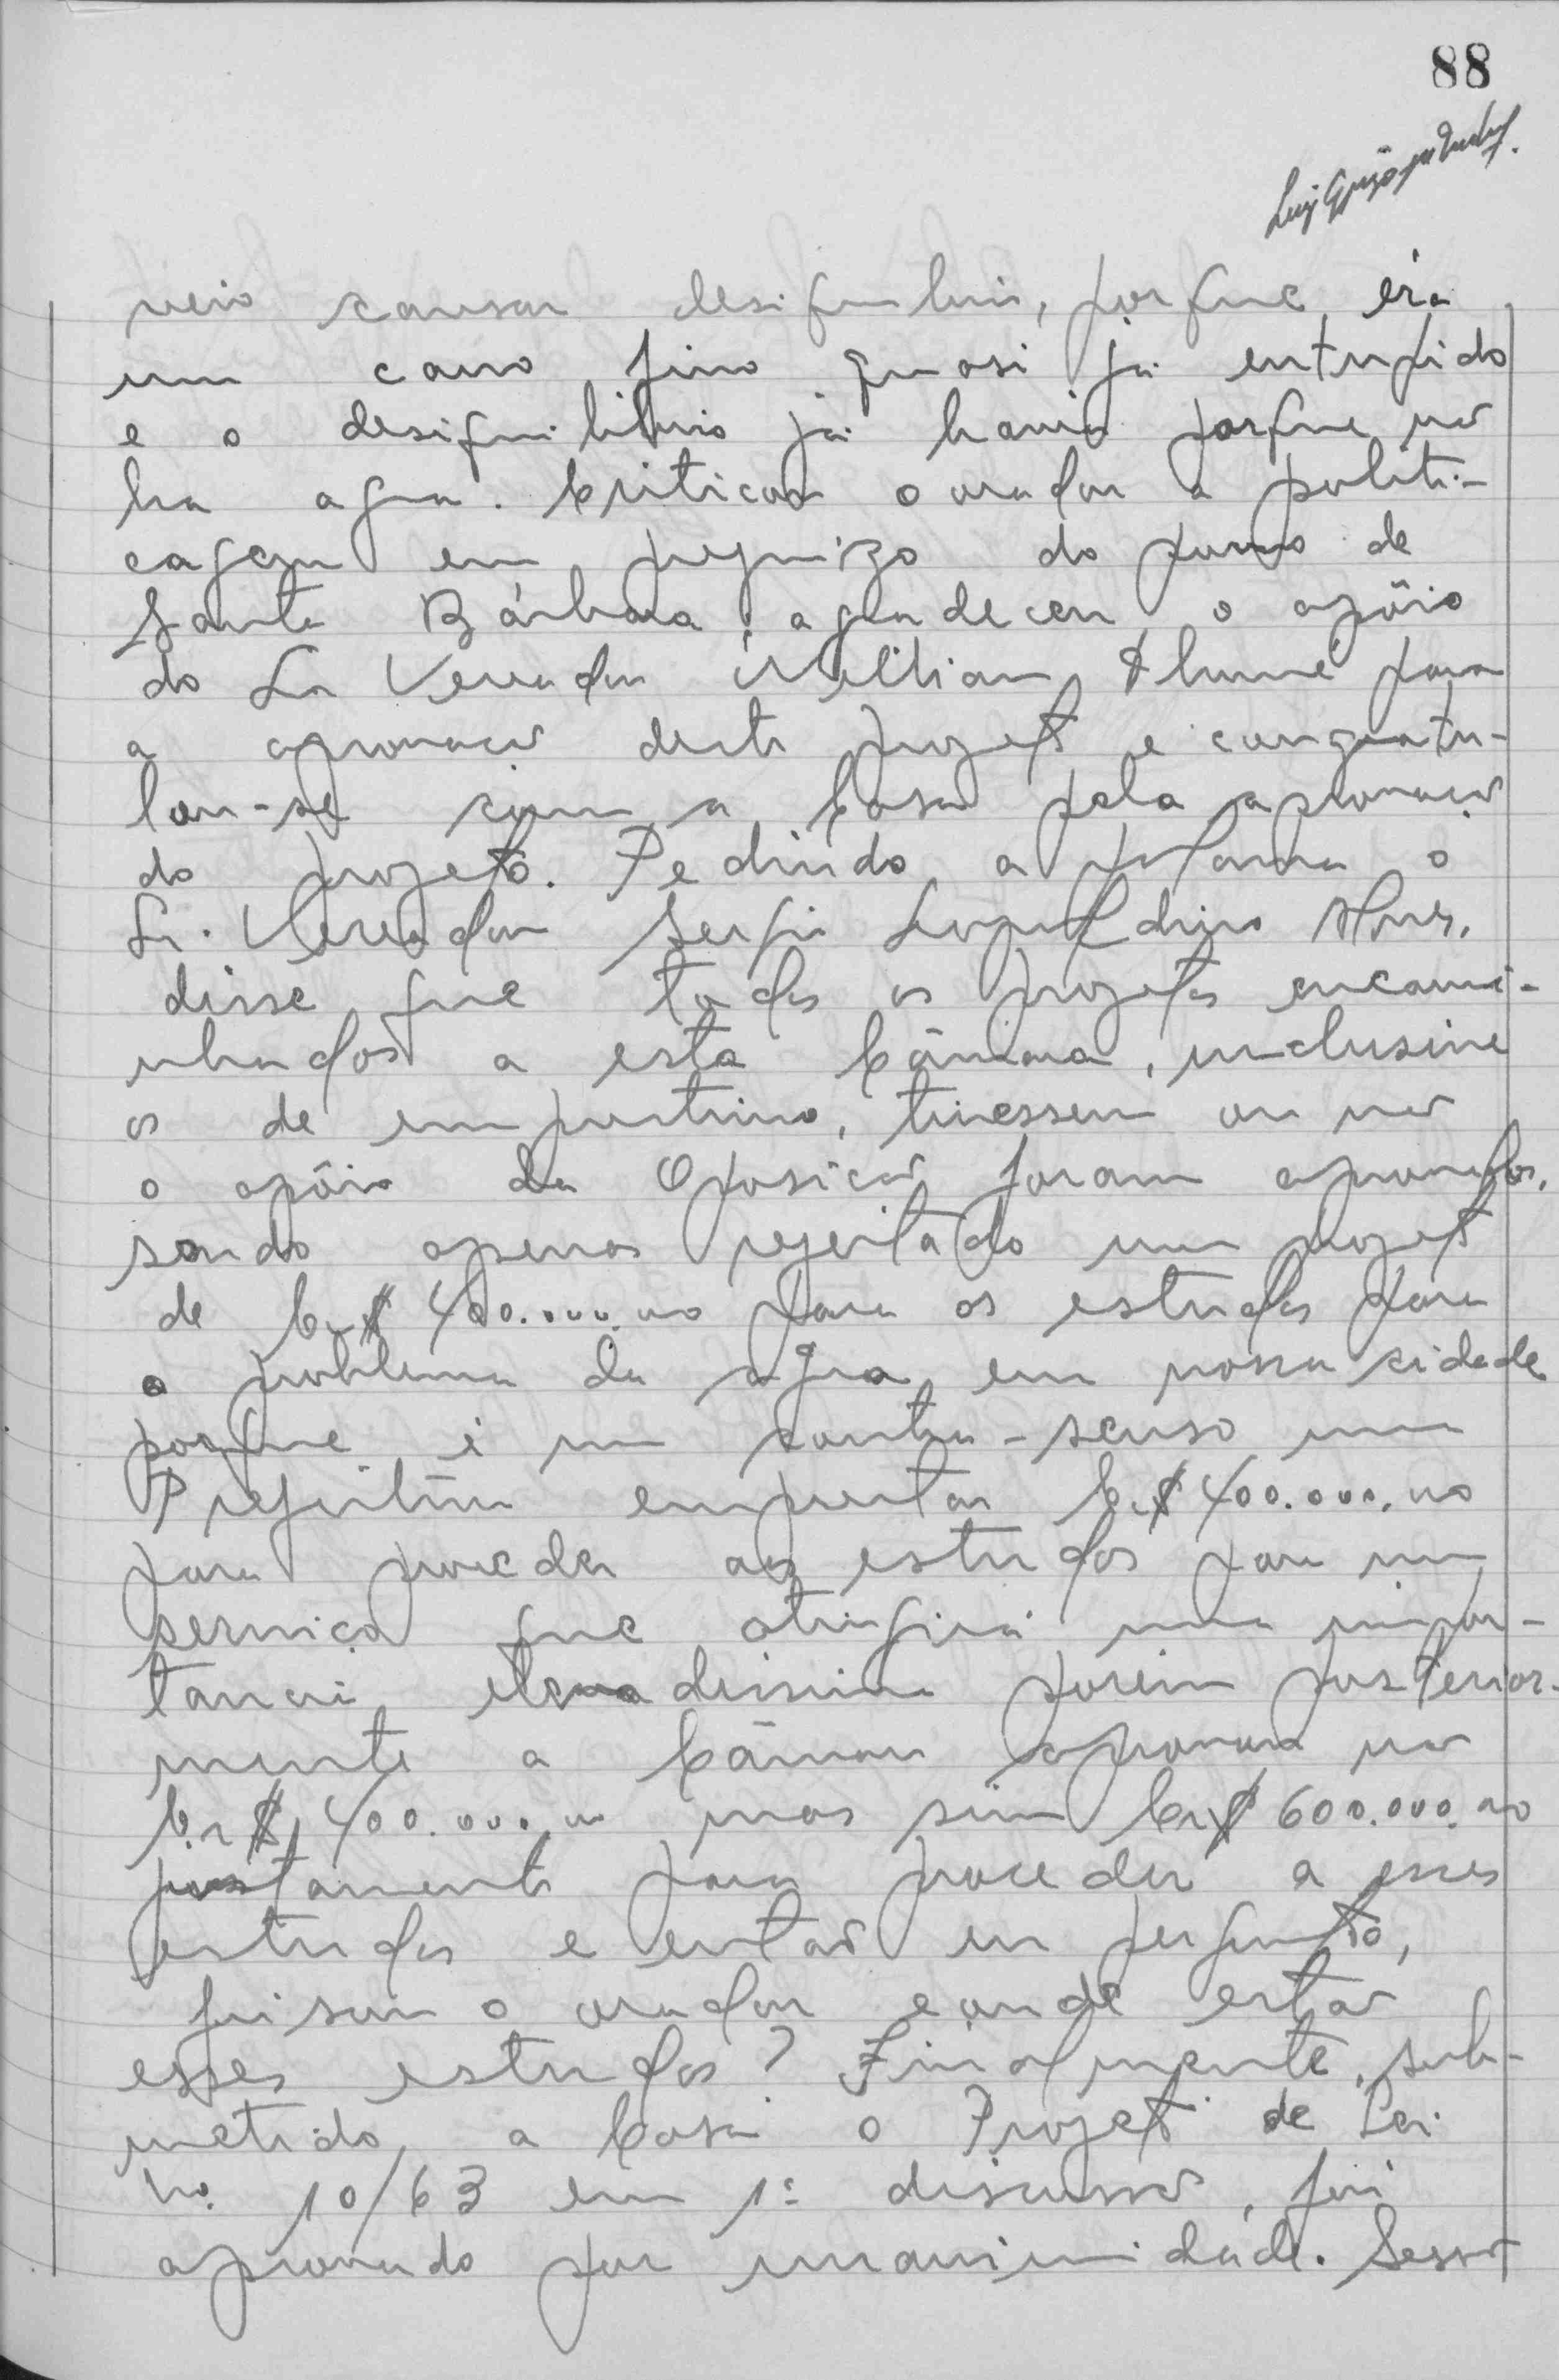 88
veio causar desiquilibrio, porque era
um cano fino quasi já entupido
e o desiquilibrio já havia porque não
ha agua. Criticou o orador a politi-
cagem em prejuizo do povo de
Santa Bárbara, agradeceu o apôio
do Sr Vereador Willian para
a aprovação deste projeto e congratu-
lou-se com a Casa pela aprovação
do projeto. Pedindo a palavra o
Sr. Vereador Sergio Leopoldino Alves,
disse que todos os projetos encami-
nhados a esta Câmara, inclusive
os de emprestimo, tivessem ou não
o apôio da Oposição foram aprovados,
sendo apenas rejeitado um projeto
de Cr$ 400.000,00 para os estudos para
o problema da agua em nossa cidade
porque é um contra-senso uma
Prefeitura emprestar Cr$ 400.000,00
para proceder aos estudos para um
serviço que atingirá uma impor-
tancia elevadissima porém posterior-
mente a Câmara aprovou não
Cr$ 400.000,00 mas sim Cr$ 600.000,00
justamente para proceder a esses
estudos e então eu pergunto,
frisou o orador eonde estão
esses estudos? Finalmente, sub-
metido a Casa o Projeto de Lei
no. 10/63 em 1ª discussão, foi
aprovado por unanimidade. Sessão